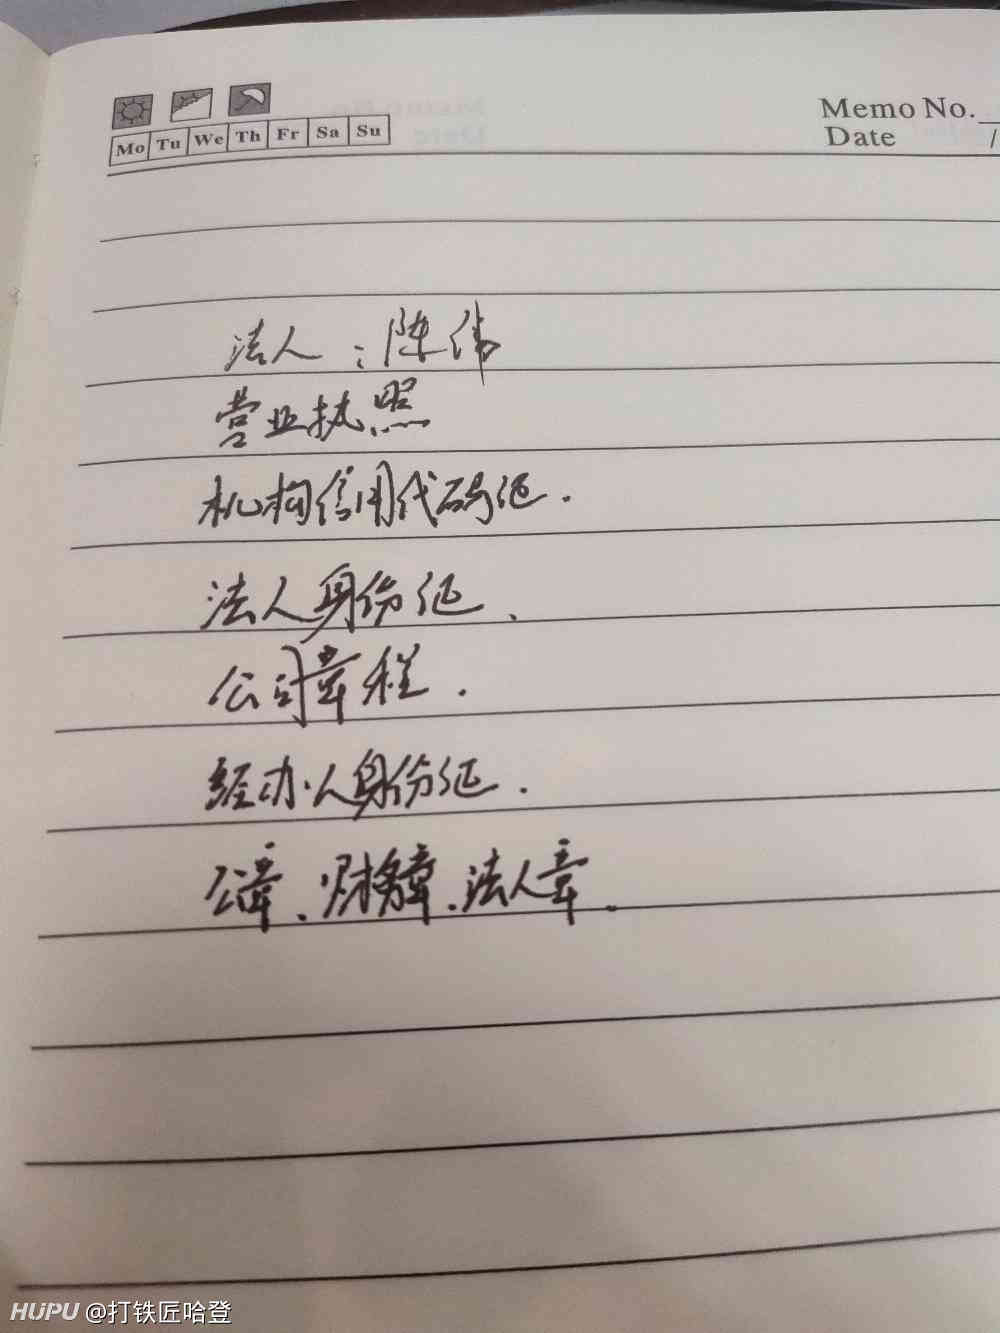 Mo Tu We Th Fr Sa Su
Memo No.
Date /
法人：陈伟
营业执照
机构信用代码证.
法人身份证、
公司章程.
经办人身份证.
公章、财务章、法人章、
HUPU @打铁匠哈登